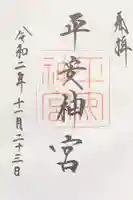 奉拝
平安神宮
令和二年十一月二十三日